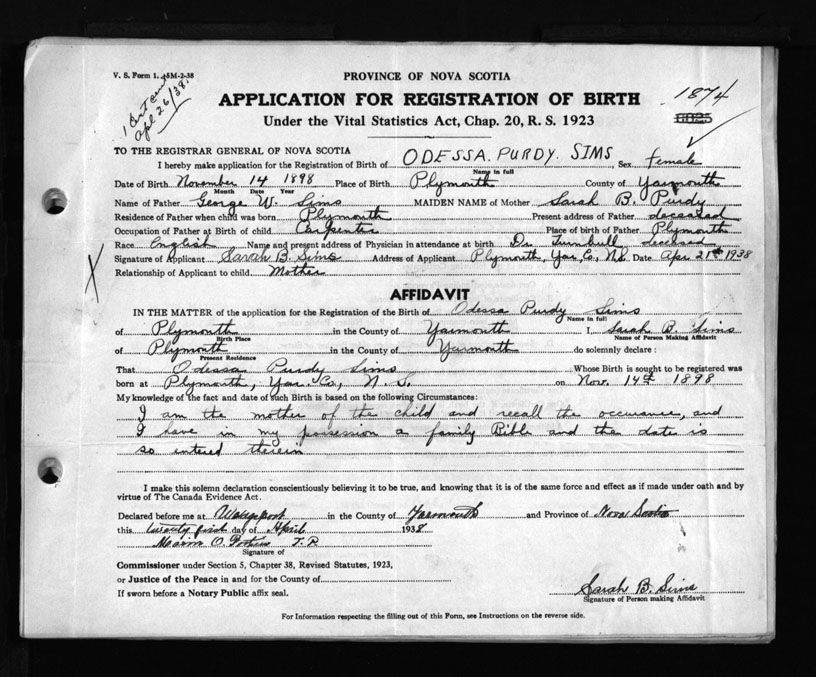 V. S. Form 1. 45M-2-38
1 Cert cent
Apl 26/38.
PROVINCE OF NOVA SCOTIA
APPLICATION FOR REGISTRATION OF BIRTH
1874
Under the Vital Statistics Act, Chap. 20, R. S. 1923
TO THE REGISTRAR GENERAL OF NOVA SCOTIA
I hereby make application for the Registration of Birth of ODESSA. PURDY. SIMS Sex female
Name in full
Date of Birth November 14 1898 Place of Birth Plymouth County of Yarmouth
Month Date Year
Name of Father George W. Sims MAIDEN NAME of Mother Sarah B. Purdy
Residence of Father when child was born Plymouth Present address of Father deceased
Occupation of Father at Birth of child Carpenter Place of birth of Father Plymouth
Race English Name and present address of Physician in attendance at birth Dr Turnbull deceased
Signature of Applicant Sarah B. Sims Address of Applicant Plymouth, Yar, Co, N.S. Date Apr 21st 1938
Relationship of Applicant to child Mother
AFFIDAVIT
IN THE MATTER of the application for the Registration of the Birth of Odessa Purdy Sims
Name in full
of Plymouth in the County of Yarmouth I, Sarah B. Sims
Birth Place Name of Person Making Affidavit
of Plymouth in the County of Yarmouth do solemnly declare :
Present Residence
That Odessa Purdy Sims Whose Birth is sought to be registered was
born at Plymouth, Yar. Co., N. S. on Nov. 14th 1898
My knowledge of the fact and date of such Birth is based on the following Circumstances:
I am the mother of the child and recall the occurance, and
I have in my possession a family Bible and the date is
so entered therein
I make this solemn declaration conscientiously believing it to be true, and knowing that it is of the same force and effect as if made under oath and by
virtue of The Canada Evidence Act.
Declared before me at in the County of Yarmouth and Province of Nova Scotia
this twenty first day of April 1938
O. J. P.
Signature of
Commissioner under Section 5, Chapter 38, Revised Statutes, 1923,
or Justice of the Peace in and for the County of
If sworn before a Notary Public affix seal.
Sarah B. Sims
Signature of Person making Affidavit
For Information respecting the filling out of this Form, see Instructions on the reverse side.